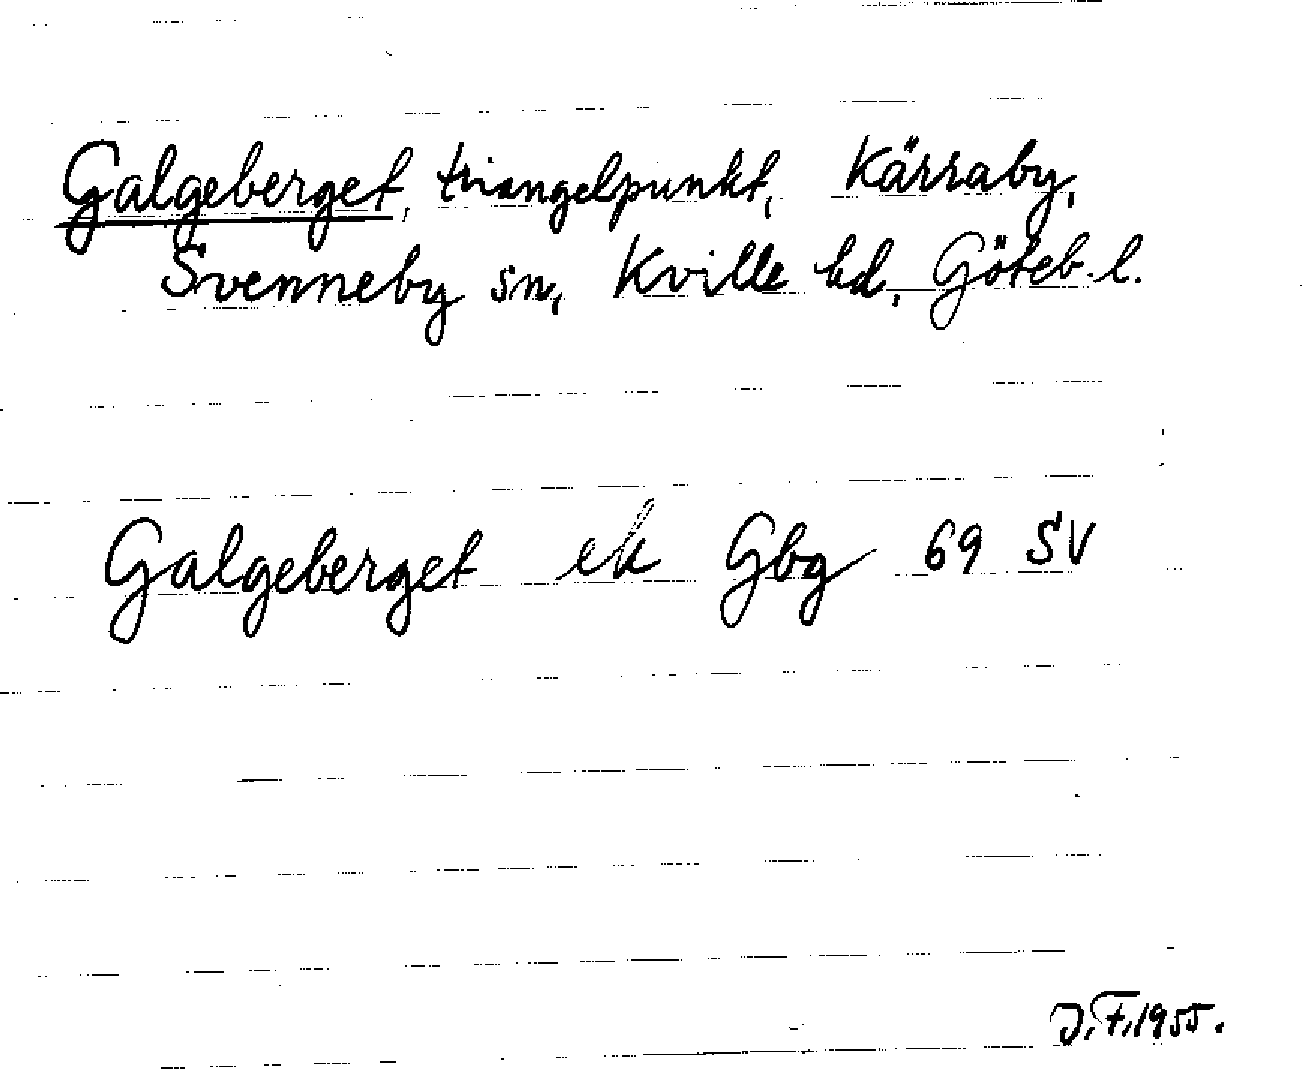 Galgeberget, triangelpunkt, Kärraby,
Svenneby sn, Kville hd, Göteb. l.
Galgeberget ek Gbg 69 SV
J.F. 1955.